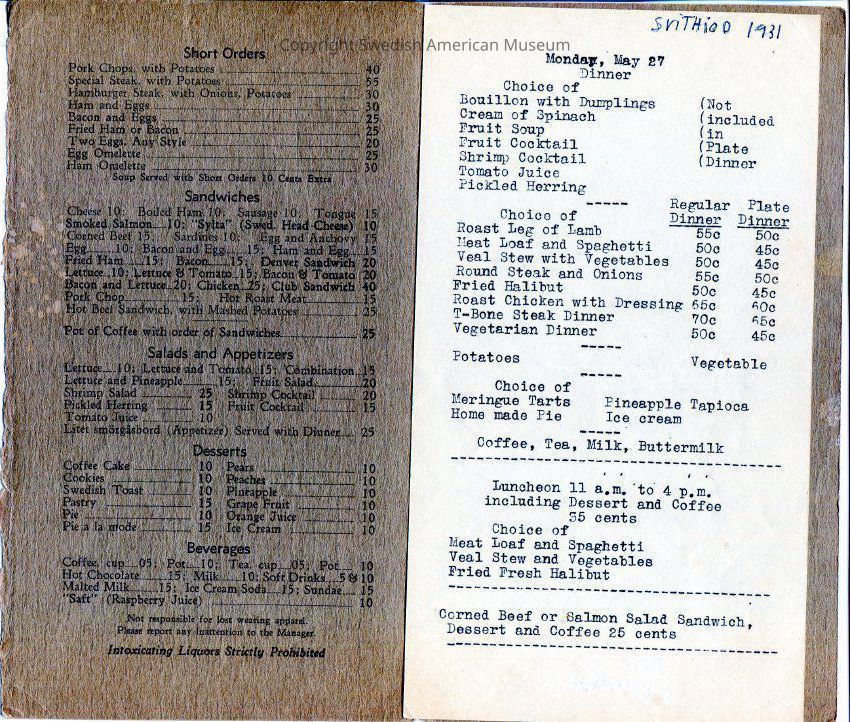 Copyright Swedish American Museum
Short Orders
Pork Chops, with Potatoes 40
Special Steak, with Potatoes 55
Hamburger Steak, with Onions, Potatoes 30
Ham and Eggs 30
Bacon and Eggs 25
Fried Ham or Bacon 25
Two Eggs, Any Style 20
Egg Omelette 25
Ham Omelette 30
Soup Served with Short Orders 10 Cents Extra
Sandwiches
Cheese 10; Boiled Ham 10; Sausage 10; Tongue 15
Smoked Salmon 10; "Sylta" (Swed. Head Cheese) 10
Corned Beef 15; Sardines 10; Egg and Anchovy 15
Egg 10; Bacon and Egg 15; Ham and Egg 15
Fried Ham 15; Bacon 15; Denver Sandwich 20
Lettuce 10; Lettuce & Tomato 15; Bacon & Tomato 20
Bacon and Lettuce 20; Chicken 25; Club Sandwich 40
Pork Chop 15; Hot Roast Meat 15
Hot Beef Sandwich, with Mashed Potatoes 25
Pot of Coffee with order of Sandwiches 25
Salads and Appetizers
Lettuce 10; Lettuce and Tomato 15; Combination 15
Lettuce and Pineapple 15; Fruit Salad 20
Shrimp Salad 25 Shrimp Cocktail 20
Pickled Herring 15 Fruit Cocktail 15
Tomato Juice 10
Litet smörgåsbord (Appetizer) Served with Dinner 25
Desserts
Coffee Cake 10 Pears 10
Cookies 10 Peaches 10
Swedish Toast 10 Pineapple 10
Pastry 15 Grape Fruit 10
Pie 10 Orange Juice 10
Pie a la mode 15 Ice Cream 10
Beverages
Coffee, cup 05; Pot 10; Tea, cup 05; Pot 10
Hot Chocolate 15; Milk 10; Soft Drinks 5 & 10
Malted Milk 15; Ice Cream Soda 15; Sundae 15
"Saft" (Raspberry Juice) 10
Not responsible for lost wearing apparel.
Please report any inattention to the Manager.
Intoxicating Liquors Strictly Prohibited
SVITHIOD 1931
Monday, May 27
Dinner
Choice of
Bouillon with Dumplings (Not
Cream of Spinach (included
Fruit Soup (in
Fruit Cocktail (Plate
Shrimp Cocktail (Dinner
Tomato Juice
Pickled Herring
----- Regular Plate
Choice of Dinner Dinner
Roast Leg of Lamb 55c 50c
Meat Loaf and Spaghetti 50c 45c
Veal Stew with Vegetables 50c 45c
Round Steak and Onions 55c 50c
Fried Halibut 50c 45c
Roast Chicken with Dressing 65c 60c
T-Bone Steak Dinner 70c 65c
Vegetarian Dinner 50c 45c
-----
Potatoes Vegetable
-----
Choice of
Meringue Tarts Pineapple Tapioca
Home made Pie Ice cream
-----
Coffee, Tea, Milk, Buttermilk
Luncheon 11 a.m. to 4 p.m.
including Dessert and Coffee
35 cents
Choice of
Meat Loaf and Spaghetti
Veal Stew and Vegetables
Fried Fresh Halibut
Corned Beef or Salmon Salad Sandwich,
Dessert and Coffee 25 cents